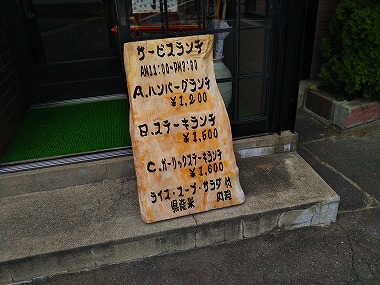 サービスランチ
AM11:00~PM3:00
A.ハンバーグランチ
¥1,200
B.ステーキランチ
¥1,500
C.ガーリックステーキランチ
¥1,600
ライス・スープ・サラダ 付
県産米